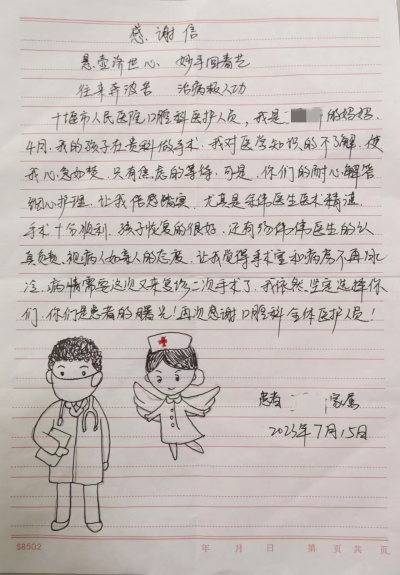 感谢信
悬壶济世心 妙手回春艺
往来奔波苦 治病救人功
十堰市人民医院口腔科医护人员，我是 的妈妈，
4月，我的孩子在贵科做手术，我对医学知识的不了解，使
我心急如焚，只有焦虑的等待，可是，你们的耐心解答
细心护理，让我倍感温暖，尤其是 伟医生医术精湛，
手术十分顺利，孩子恢复的很好，还有 伟伟医生的认
真负责，视病人如亲人的态度，让我觉得手术室和病房不再冰
冷，病情需要这次又来 二次手术了，我依然坚定选择你
们，你们是患者的曙光！再次感谢口腔科全体医护人员！
患者 家属
2023年7月15日
S8502
年 月 日 第 页 共 页